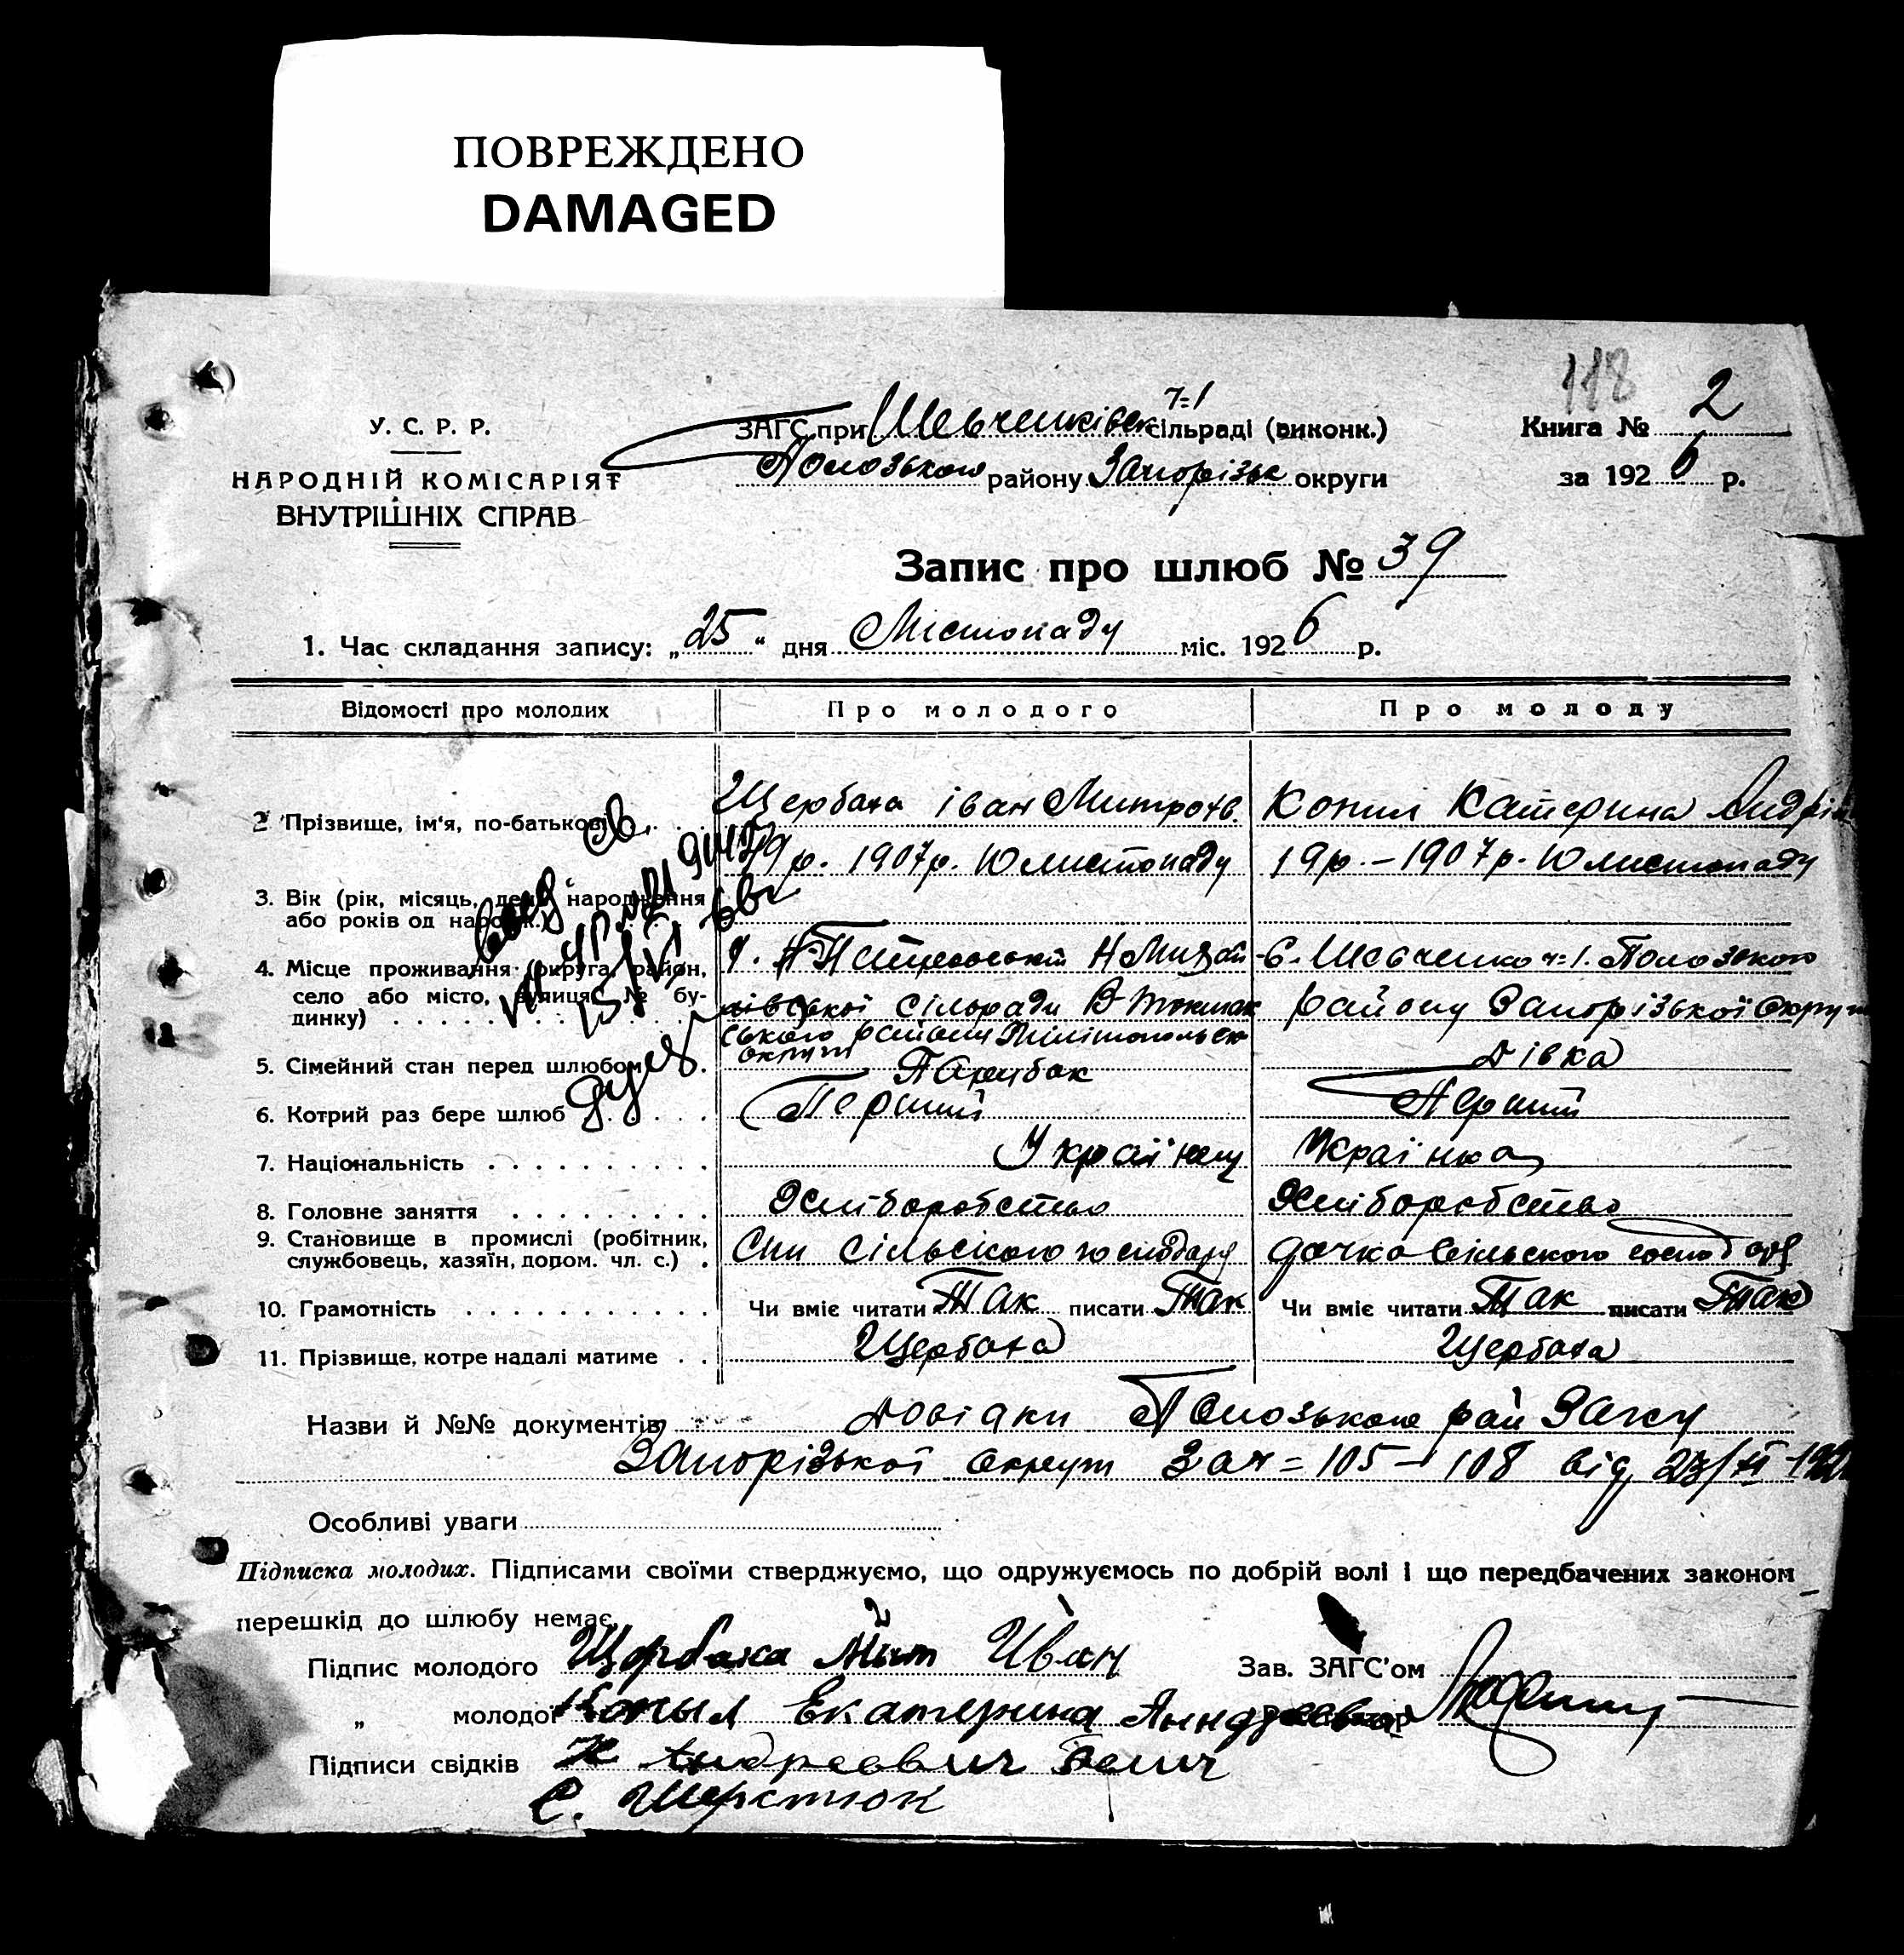 ПОВРЕЖДЕНО
DAMAGED
118
У. С. Р. Р.
НАРОДНІЙ КОМІСАРІЯТ
ВНУТРІШНІХ СПРАВ
ЗАГС при Шевченківск ч=1 сільраді (виконк.)
Полозького району Запорізьк округи
Книга № 2
за 1926 р.
Запис про шлюб № 39
1. Час складання запису: „25“ дня Листопаду міс. 1926 р.
Відомості про молодих
Про молодого
Про молоду
2 Прізвище, ім'я, по-батькові
Щербака Іван Митров.
Копил Катерина Андрі
3. Вік (рік, місяць, день народження
або років од народж.)
19 р. 1907 р. 10 листопаду
19 р. – 1907 р. 10 листопаду
4. Місце проживання (округа, район,
село або місто, вулиця, № бу-
динку)
сільради В Токмак
ського району
округи
с. Шевченко ч=1. Полозького
району Запорізької Округи
5. Сімейний стан перед шлюбом
Парубок
Дівка
6. Котрий раз бере шлюб
Перший
Перший
7. Національність
Українец
Українка
8. Головне заняття
Хліборобство
Хліборобство
9. Становище в промислі (робітник,
службовець, хазяїн, допом. чл. с.)
Син сільского господаря
дочка сільского господаря
10. Грамотність
Чи вміє читати Так писати Так
Чи вміє читати Так писати Так
11. Прізвище, котре надалі матиме
Щербака
Щербака
Назви й №№ документів Довідки Полозького рай Загсу
Запорізької округи За ч= 105 – 108 від 23/XI
Особливі уваги
Підписка молодих. Підписами своїми стверджуємо, що одружуємось по добрій волі і що передбачених законом
перешкід до шлюбу немає.
Підпис молодого Щербака Мит Иван
Зав. ЗАГС'ом
„ молодої Копыл Екатерина Анндреевна
Підписи свідків Андреевич
С. Шерстюк